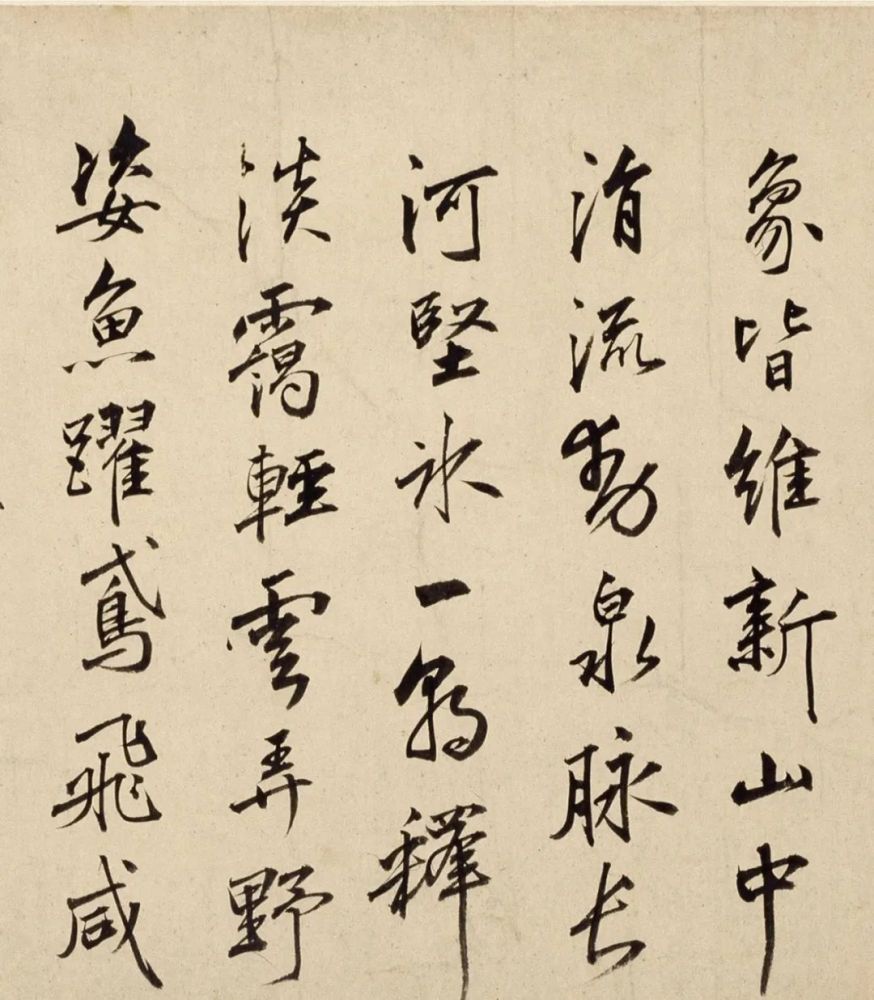 象皆維新山中
涓流動泉脉長
河堅冰一朝釋
淡靄輕雲弄野
姿魚躍鳶飛咸